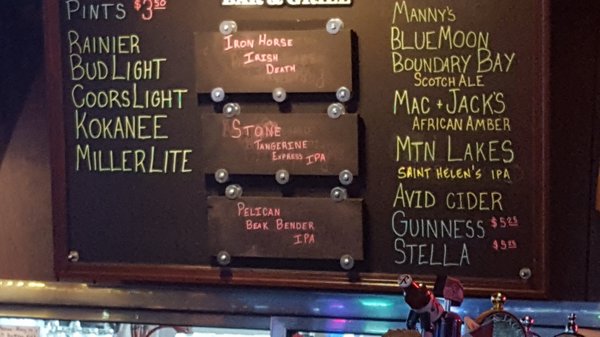 PINTS $3.50
RAINIER
BUD LIGHT
COORS LIGHT
KOKANEE
MILLER LITE
BAR & GRILL
IRON HORSE
IRISH
DEATH
STONE
TANGERINE
EXPRESS IPA
PELICAN
BEAK BENDER
IPA
MANNY'S
BLUE MOON
BOUNDARY BAY
SCOTCH ALE
MAC + JACK'S
AFRICAN AMBER
MTN LAKES
SAINT HELEN'S IPA
AVID CIDER
GUINNESS $5.25
STELLA $5.25